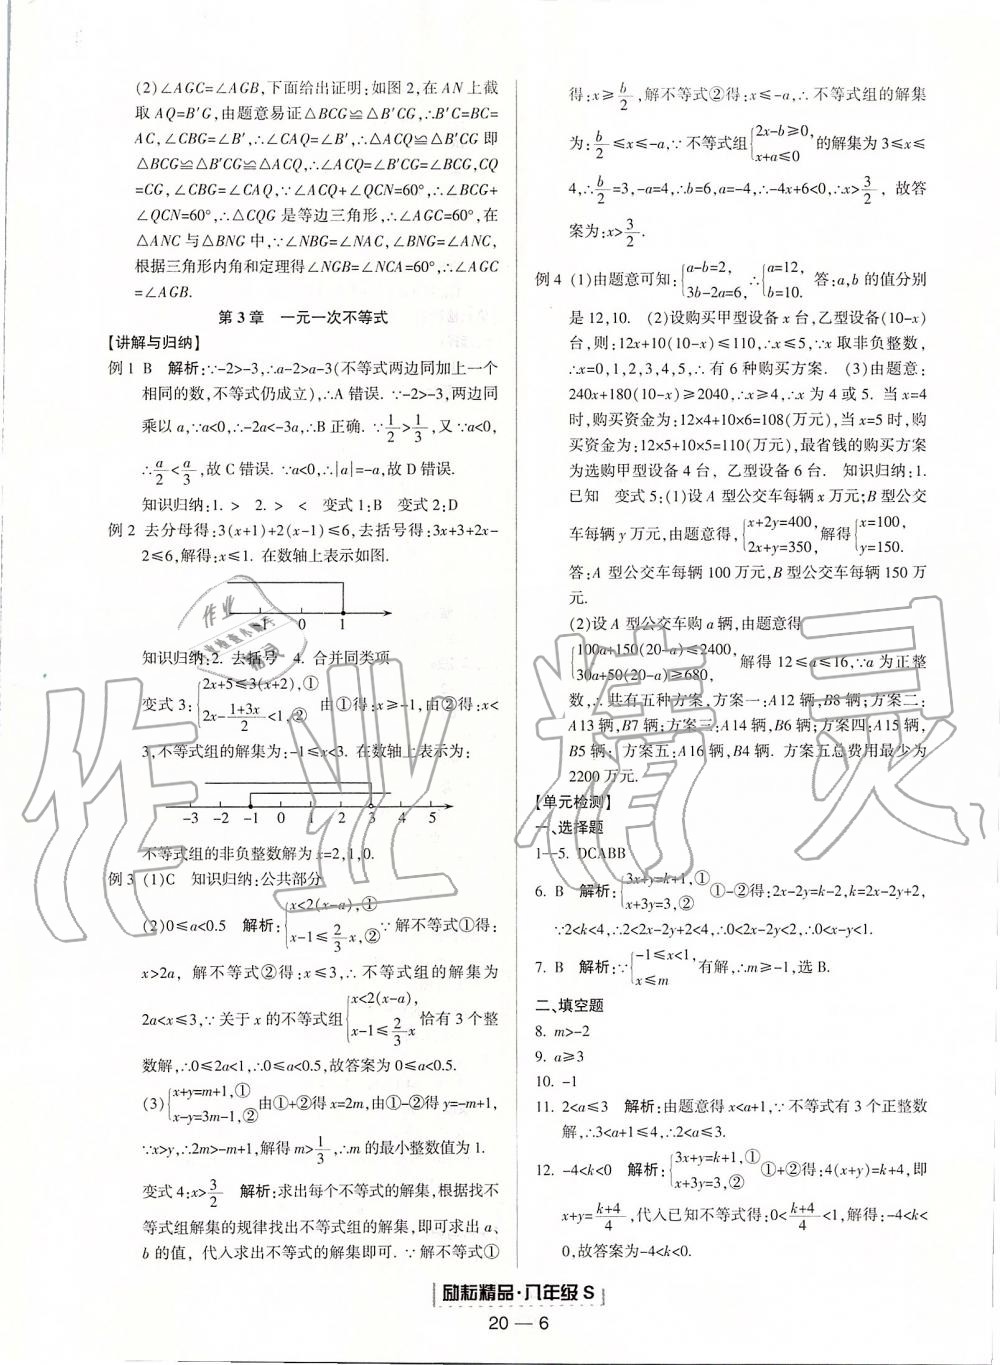 (2)∠AGC=∠AGB,下面给出证明:如图2,在AN上截
取AQ=B′G,由题意易证△BCG≌△B′CG,∴B′C=BC=
AC,∠CBG=∠B′,∴∠CAQ=∠B′,∴△ACQ≌△B′CG即
△BCG≌△B′CG≌△ACQ,∴∠ACQ=∠B′CG=∠BCG,CQ
=CG,∠CBG=∠CAQ,∵∠ACQ+∠QCN=60°,∴∠BCG+
∠QCN=60°,∴△CQG是等边三角形,∴∠AGC=60°,在
△ANC与△BNG中,∵∠NBG=∠NAC,∠BNG=∠ANC,
根据三角形内角和定理得∠NGB=∠NCA=60°,∴∠AGC
=∠AGB.
第3章 一元一次不等式
【讲解与归纳】
例1 B 解析:∵-2>-3,∴a-2>a-3(不等式两边同加上一个
相同的数,不等式仍成立),∴A错误. ∵-2>-3,两边同
乘以a,∵a<0,∴-2a<-3a,∴B正确. ∵1/2>1/3,又∵a<0,
∴a/2<a/3,故C错误. ∵a<0,∴|a|=-a,故D错误.
知识归纳:1. > 2. < 变式1:B 变式2:D
例2 去分母得:3(x+1)+2(x-1)≤6,去括号得:3x+3+2x-
2≤6,解得:x≤1. 在数轴上表示如图.
-1 0 1
知识归纳:2. 去括号 4. 合并同类项
变式3:{2x+5≤3(x+2),① 2x-(1+3x)/2<1,② 由①得:x≥-1,由②得:x<
3,不等式组的解集为:-1≤x<3. 在数轴上表示为:
-3 -2 -1 0 1 2 3 4 5
不等式组的非负整数解为x=2,1,0.
例3 (1)C 知识归纳:公共部分
(2)0≤a<0.5 解析:{x<2(x-a),① x-1≤2/3x,② ∵解不等式①得:
x>2a, 解不等式②得:x≤3,∴不等式组的解集为
2a<x≤3,∵关于x的不等式组{x<2(x-a), x-1≤2/3x 恰有3个整
数解,∴0≤2a<1,∴0≤a<0.5,故答案为0≤a<0.5.
(3){x+y=m+1,① x-y=3m-1,② 由①+②得x=2m,由①-②得y=-m+1,
∵x>y,∴2m>-m+1,解得m>1/3,∴m的最小整数值为1.
变式4:x>3/2 解析:求出每个不等式的解集,根据找不
等式组解集的规律找出不等式组的解集,即可求出a、
b的值, 代入求出不等式的解集即可. ∵解不等式①
得:x≥b/2,解不等式②得:x≤-a,∴不等式组的解集
为:b/2≤x≤-a,∵不等式组{2x-b≥0, x+a≤0 的解集为3≤x≤
4,∴b/2=3,-a=4,∴b=6,a=-4,∴-4x+6<0,∴x>3/2, 故答
案为:x>3/2.
例4 (1)由题意可知:{a-b=2, 3b-2a=6, ∴{a=12, b=10. 答:a,b的值分别
是12,10. (2)设购买甲型设备x台,乙型设备(10-x)
台,则:12x+10(10-x)≤110,∴x≤5,∵x取非负整数,
∴x=0,1,2,3,4,5,∴有6种购买方案. (3)由题意:
240x+180(10-x)≥2040,∴x≥4,∴x为4或5. 当x=4
时,购买资金为:12×4+10×6=108(万元),当x=5时,购
买资金为:12×5+10×5=110(万元),最省钱的购买方案
为选购甲型设备4台, 乙型设备6台. 知识归纳:1.
已知 变式5:(1)设A型公交车每辆x万元;B型公交
车每辆y万元,由题意得,{x+2y=400, 2x+y=350, 解得{x=100, y=150.
答:A型公交车每辆100万元,B型公交车每辆150万
元.
(2)设A型公交车购a辆,由题意得
{100a+150(20-a)≤2400, 30a+50(20-a)≥680, 解得12≤a≤16,∵a为正整
数,∴共有五种方案,方案一:A12辆,B8辆;方案二:
A13辆,B7辆;方案三:A14辆,B6辆;方案四:A15辆,
B5辆; 方案五:A16辆,B4辆. 方案五总费用最少为
2200万元.
【单元检测】
一、选择题
1—5. DCABB
6. B 解析:{3x+y=k+1,① x+3y=3,② ①-②得:2x-2y=k-2,k=2x-2y+2,
∵2<k<4,∴2<2x-2y+2<4,∴0<2x-2y<2,∴0<x-y<1.
7. B 解析:∵{-1≤x<1, x≤m 有解,∴m≥-1,选B.
二、填空题
8. m>-2
9. a≥3
10. -1
11. 2<a≤3 解析:由题意得x<a+1,∵不等式有3个正整数
解,∴3<a+1≤4,∴2<a≤3.
12. -4<k<0 解析:{3x+y=k+1,① x+3y=3,② ①+②得:4(x+y)=k+4,即
x+y=(k+4)/4,代入已知不等式得:0<(k+4)/4<1,解得:-4<k<
0,故答案为-4<k<0.
励耘精品·八年级S
20 — 6
作业精灵